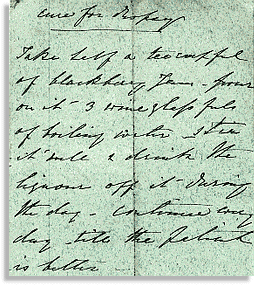 cure for Dropsy
Take half a teacupful
of blackberry Jam - pour
on it 3 wineglassfuls
of boiling water stir
it well & drink the
liquor off it during
the day - continue every
day till the Patient
is better -